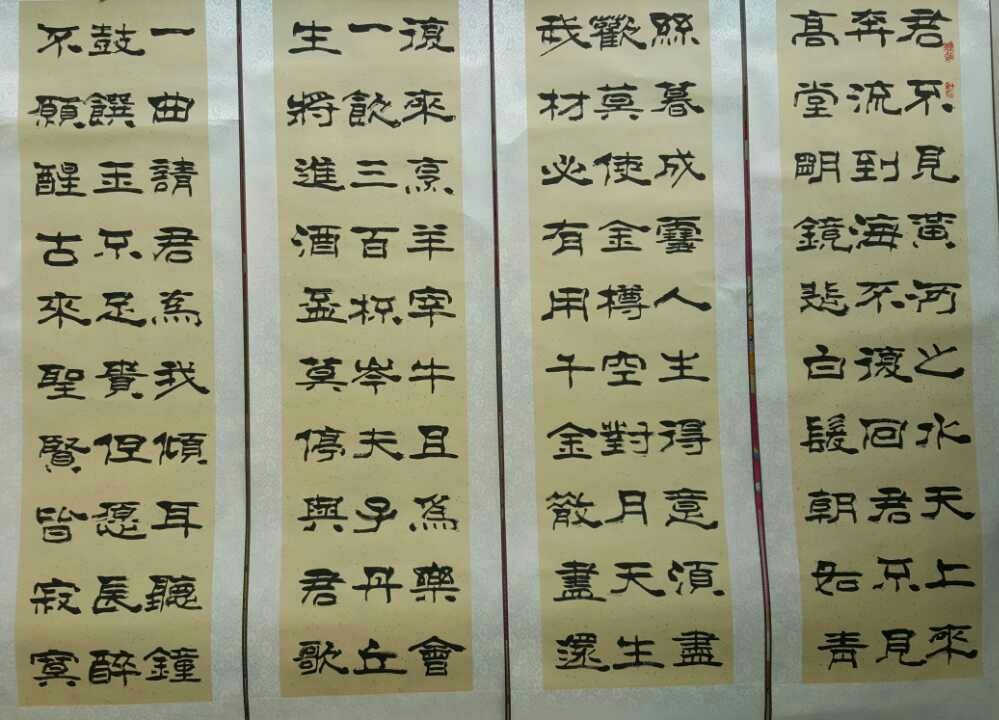 君不見黃河之水天上來
奔流到海不復回君不見
高堂明鏡悲白髮朝如青
絲暮成雪人生得意須盡
歡莫使金樽空對月天生
我材必有用千金散盡還
復來烹羊宰牛且為樂會
一飲三百杯岑夫子丹丘
生將進酒盃莫停與君歌
一曲請君為我傾耳聽鐘
鼓饌玉不足貴但愿長醉
不願醒古來聖賢皆寂寞